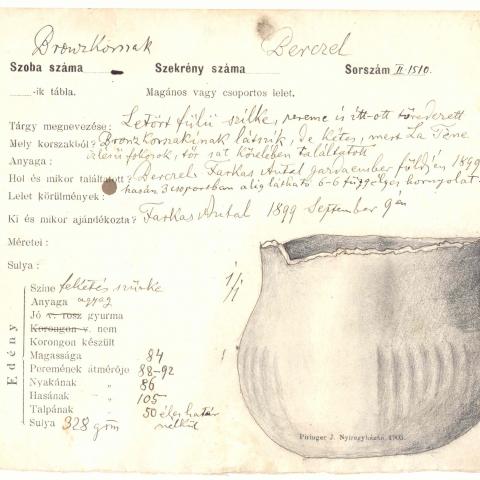 Bronzkorszak Berczel
Szoba száma Szekrény száma Sorszám II-1510.
-ik tábla. Magános vagy csoportos lelet.
Tárgy megnevezése: Letört fülü szilke, pereme is itt-ott töredezett
Mely korszakból? Bronzkorsakinak látszik, de kétes, mert La Téne
Anyaga: izlésü fokosok, tőr sat közelében találtatott
Hol és mikor találtatott? Berczel Farkas Antal gazdaember földjén 1899
Lelet körülmények: hasán 3 csoportban alig látható 6-6 függélyes hornyolat
Ki és mikor ajándékozta? Farkas Antal 1899 September 9én
Méretei:
Sulya:
Edény
Szine feketés szürke
Anyaga agyag
Jó v. rosz gyurma
Korongon v. nem
Korongon készült
Magassága 84
Peremének átmérője 88-92
Nyakának " 86
Hasának " 105
Talpának " 50 éles határ nélkül
Sulya 328 grm
1/1
Piringer J. Nyiregyházán, 1903.